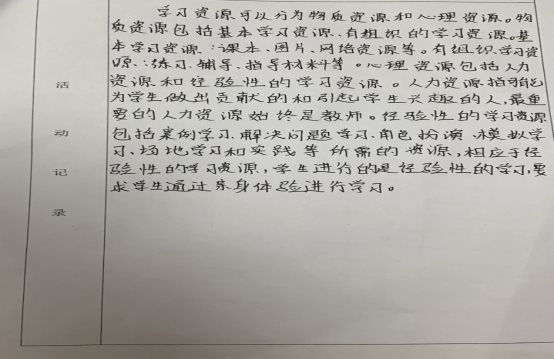 学习资源可以分为物质资源和心理资源。物
质资源包括基本学习资源、有组织的学习资源。基
本学习资源:课本、图片、网络资源等。有组织学习资
源:练习、辅导、指导材料等。心理资源包括人力
资源和经验性的学习资源。人力资源指可能
为学生做出贡献的和引起学生兴趣的人,最重
要的人力资源始终是教师。经验性的学习资源
包括案例学习、解决问题学习、角色扮演、模拟学
习、场地学习和实践等所需的资源,相应于经
验性的学习资源,学生进行的是经验性的学习,要
求学生通过亲身体验进行学习。
活
动
记
录